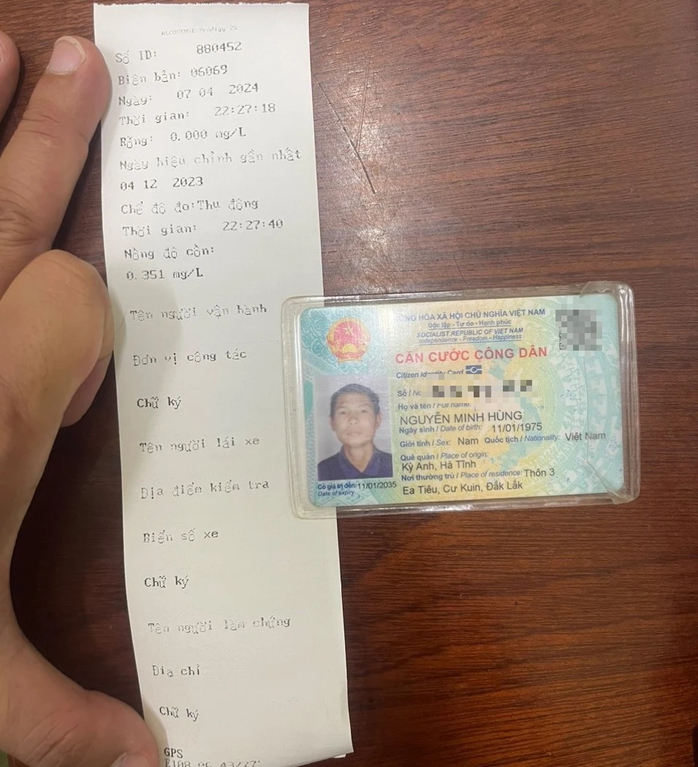 Số ID: 880452
Biên bản: 06069
Ngày: 07 04 2024
Thời gian: 22:27:18
Rỗng: 0.000 mg/L
Ngày hiệu chỉnh gần nhất
04 12 2023
Chế độ đo:Thụ động
Thời gian: 22:27:40
Nồng độ cồn:
0.351 mg/L
Tên người vận hành
Đơn vị công tác
Chữ ký
Tên người lái xe
Địa điểm kiểm tra
Biển số xe
Chữ ký
Tên người làm chứng
Địa chỉ
Chữ ký
GPS
CỘNG HÒA XÃ HỘI CHỦ NGHĨA VIỆT NAM
Độc lập - Tự do - Hạnh phúc
SOCIALIST REPUBLIC OF VIET NAM
Independence - Freedom - Happiness
CĂN CƯỚC CÔNG DÂN
Citizen Identity Card
Số / No:
Họ và tên / Full name:
NGUYỄN MINH HÙNG
Ngày sinh / Date of birth: 11/01/1975
Giới tính / Sex: Nam Quốc tịch / Nationality: Việt Nam
Quê quán / Place of origin:
Kỳ Anh, Hà Tĩnh
Nơi thường trú / Place of residence: Thôn 3
Ea Tiêu, Cư Kuin, Đắk Lắk
Có giá trị đến: 11/01/2035
Date of expiry